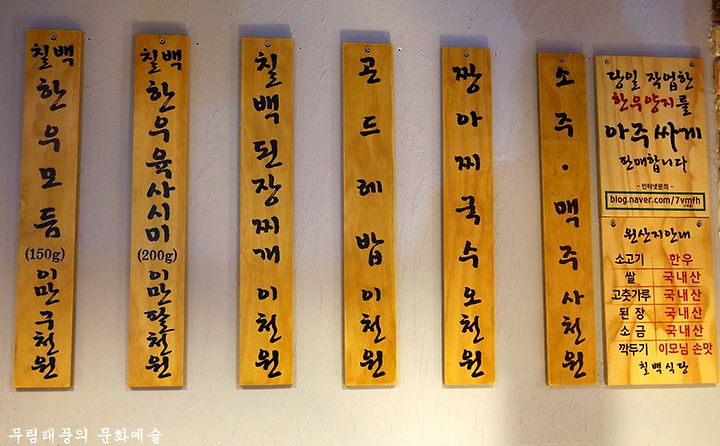 칠백
한우모듬
(150g)
이만구천원
칠백
한우육사시미
(200g)
이만팔천원
칠백된장찌개이천원
곤드레밥이천원
짱아찌국수오천원
소주·맥주사천원
당일 작업한
한우양지를
아주 싸게
판매합니다
- 인터넷문의 -
blog.naver.com/7vmfh
원산지안내
소고기 한우
쌀 국내산
고춧가루 국내산
된장 국내산
소금 국내산
깍두기 이모님 손맛
칠백식당
무림태풍의 문화예술